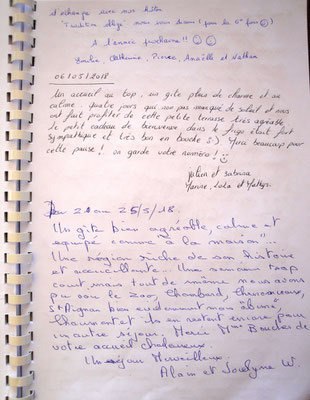 et échange avec nos hôtes
"Tradition déjà" avec nous deux! (pour la 6° fois ☺)
A l'année prochaine!! ☺ ☺
Catherine, Pierre, Anaëlle et Nathan
06/05/2018
Un accueil au top, un gîte plein de charme et au
calme quatre jours qui non pas manqué de soleil et nous
ont fait profiter de cette petite terrasse très agréable
le petit cadeau de bienvenue dans le frigo était fort
sympathique et très bon en bouche :) Merci beaucoup pour
cette pause! on garde votre numéro! ☺
Julien et Sabrina
Lola et Mattys.
Du 21 au 25/5/18.
Un gîte bien agréable, calme et
équipé "comme à la maison"...
Une région riche de son histoire
et accueillante... Une semaine trop
court mais tout de même nous avons
pu voir le Zoo, Chambord, Chenonceaux,
St Aignan bien evidemment mais "Blois"
Chaumont et ils en restent encore pour
un autre séjour. Merci Mme Boucher de
votre accueil chaleureux.
Un séjour Merveilleux.
Alain et Jocelyne W.